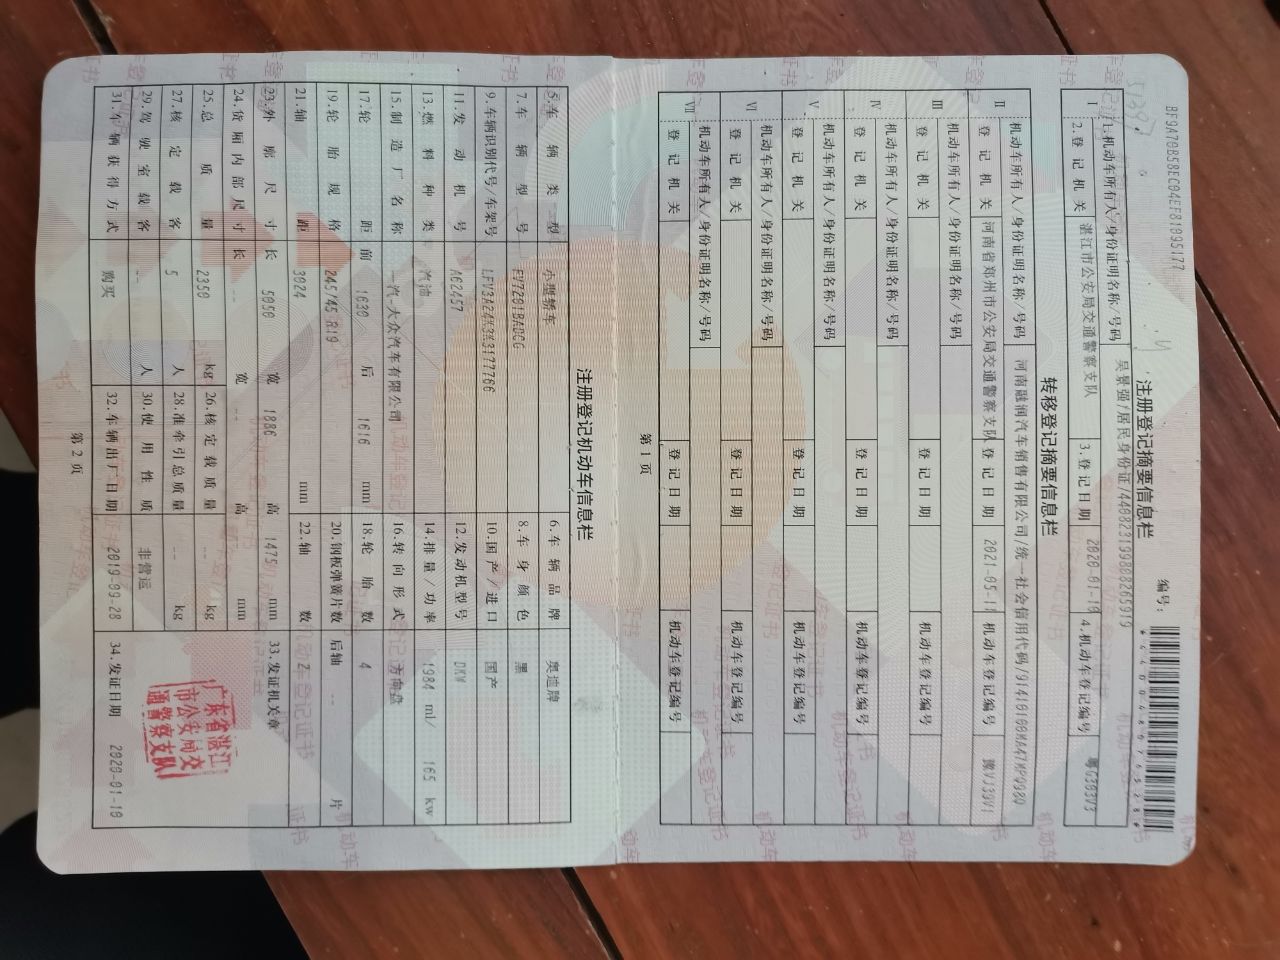 BF9A70B58EC04EF81095177
注册登记摘要信息栏
编号:
*440048076528*
I 1.机动车所有人/身份证明名称/号码 吴景强/居民身份证/440823199808265919
2.登记机关 湛江市公安局交通警察支队 3.登记日期 2020-01-10 4.机动车登记编号 粤G303V3
转移登记摘要信息栏
II 机动车所有人/身份证明名称/号码 河南融润汽车销售有限公司/统一社会信用代码/91410100MA47MP098Q
登记机关 河南省郑州市公安局交通警察支队 登记日期 2021-05-1 机动车登记编号 豫VJ39V1
III 机动车所有人/身份证明名称/号码
登记机关 登记日期 机动车登记编号
IV 机动车所有人/身份证明名称/号码
登记机关 登记日期 机动车登记编号
V 机动车所有人/身份证明名称/号码
登记机关 登记日期 机动车登记编号
VI 机动车所有人/身份证明名称/号码
登记机关 登记日期 机动车登记编号
VII 机动车所有人/身份证明名称/号码
登记机关 登记日期 机动车登记编号
第1页
注册登记机动车信息栏
5.车辆类型 小型轿车 6.车辆品牌 奥迪牌
7.车辆型号 FV7201BADCG 8.车身颜色 黑
9.车辆识别代号/车架号 LFV3A24K3K3177766 10.国产/进口 国产
11.发动机号 A62457 12.发动机型号 DKW
13.燃料种类 汽油 14.排量/功率 1984 ml/ 165 kw
15.制造厂名称 一汽-大众汽车有限公司 16.转向形式 方向盘
17.轮距 前 1630 后 1616 mm 18.轮胎数 4
19.轮胎规格 245/45 R19 20.钢板弹簧片数 后轴 -- 片
21.轴距 3024 mm 22.轴数 2
23.外廓尺寸 长 5050 宽 1886 高 1475 mm 33.发证机关章
24.货厢内部尺寸 长 -- 宽 -- 高 -- mm
25.总质量 2350 kg 26.核定载质量 -- kg
27.核定载客 5 人 28.准牵引总质量 -- kg
29.驾驶室载客 -- 人 30.使用性质 非营运
31.车辆获得方式 购买 32.车辆出厂日期 2019-09-28 34.发证日期 2020-01-10
广东省湛江
市公安局交
通警察支队
第2页